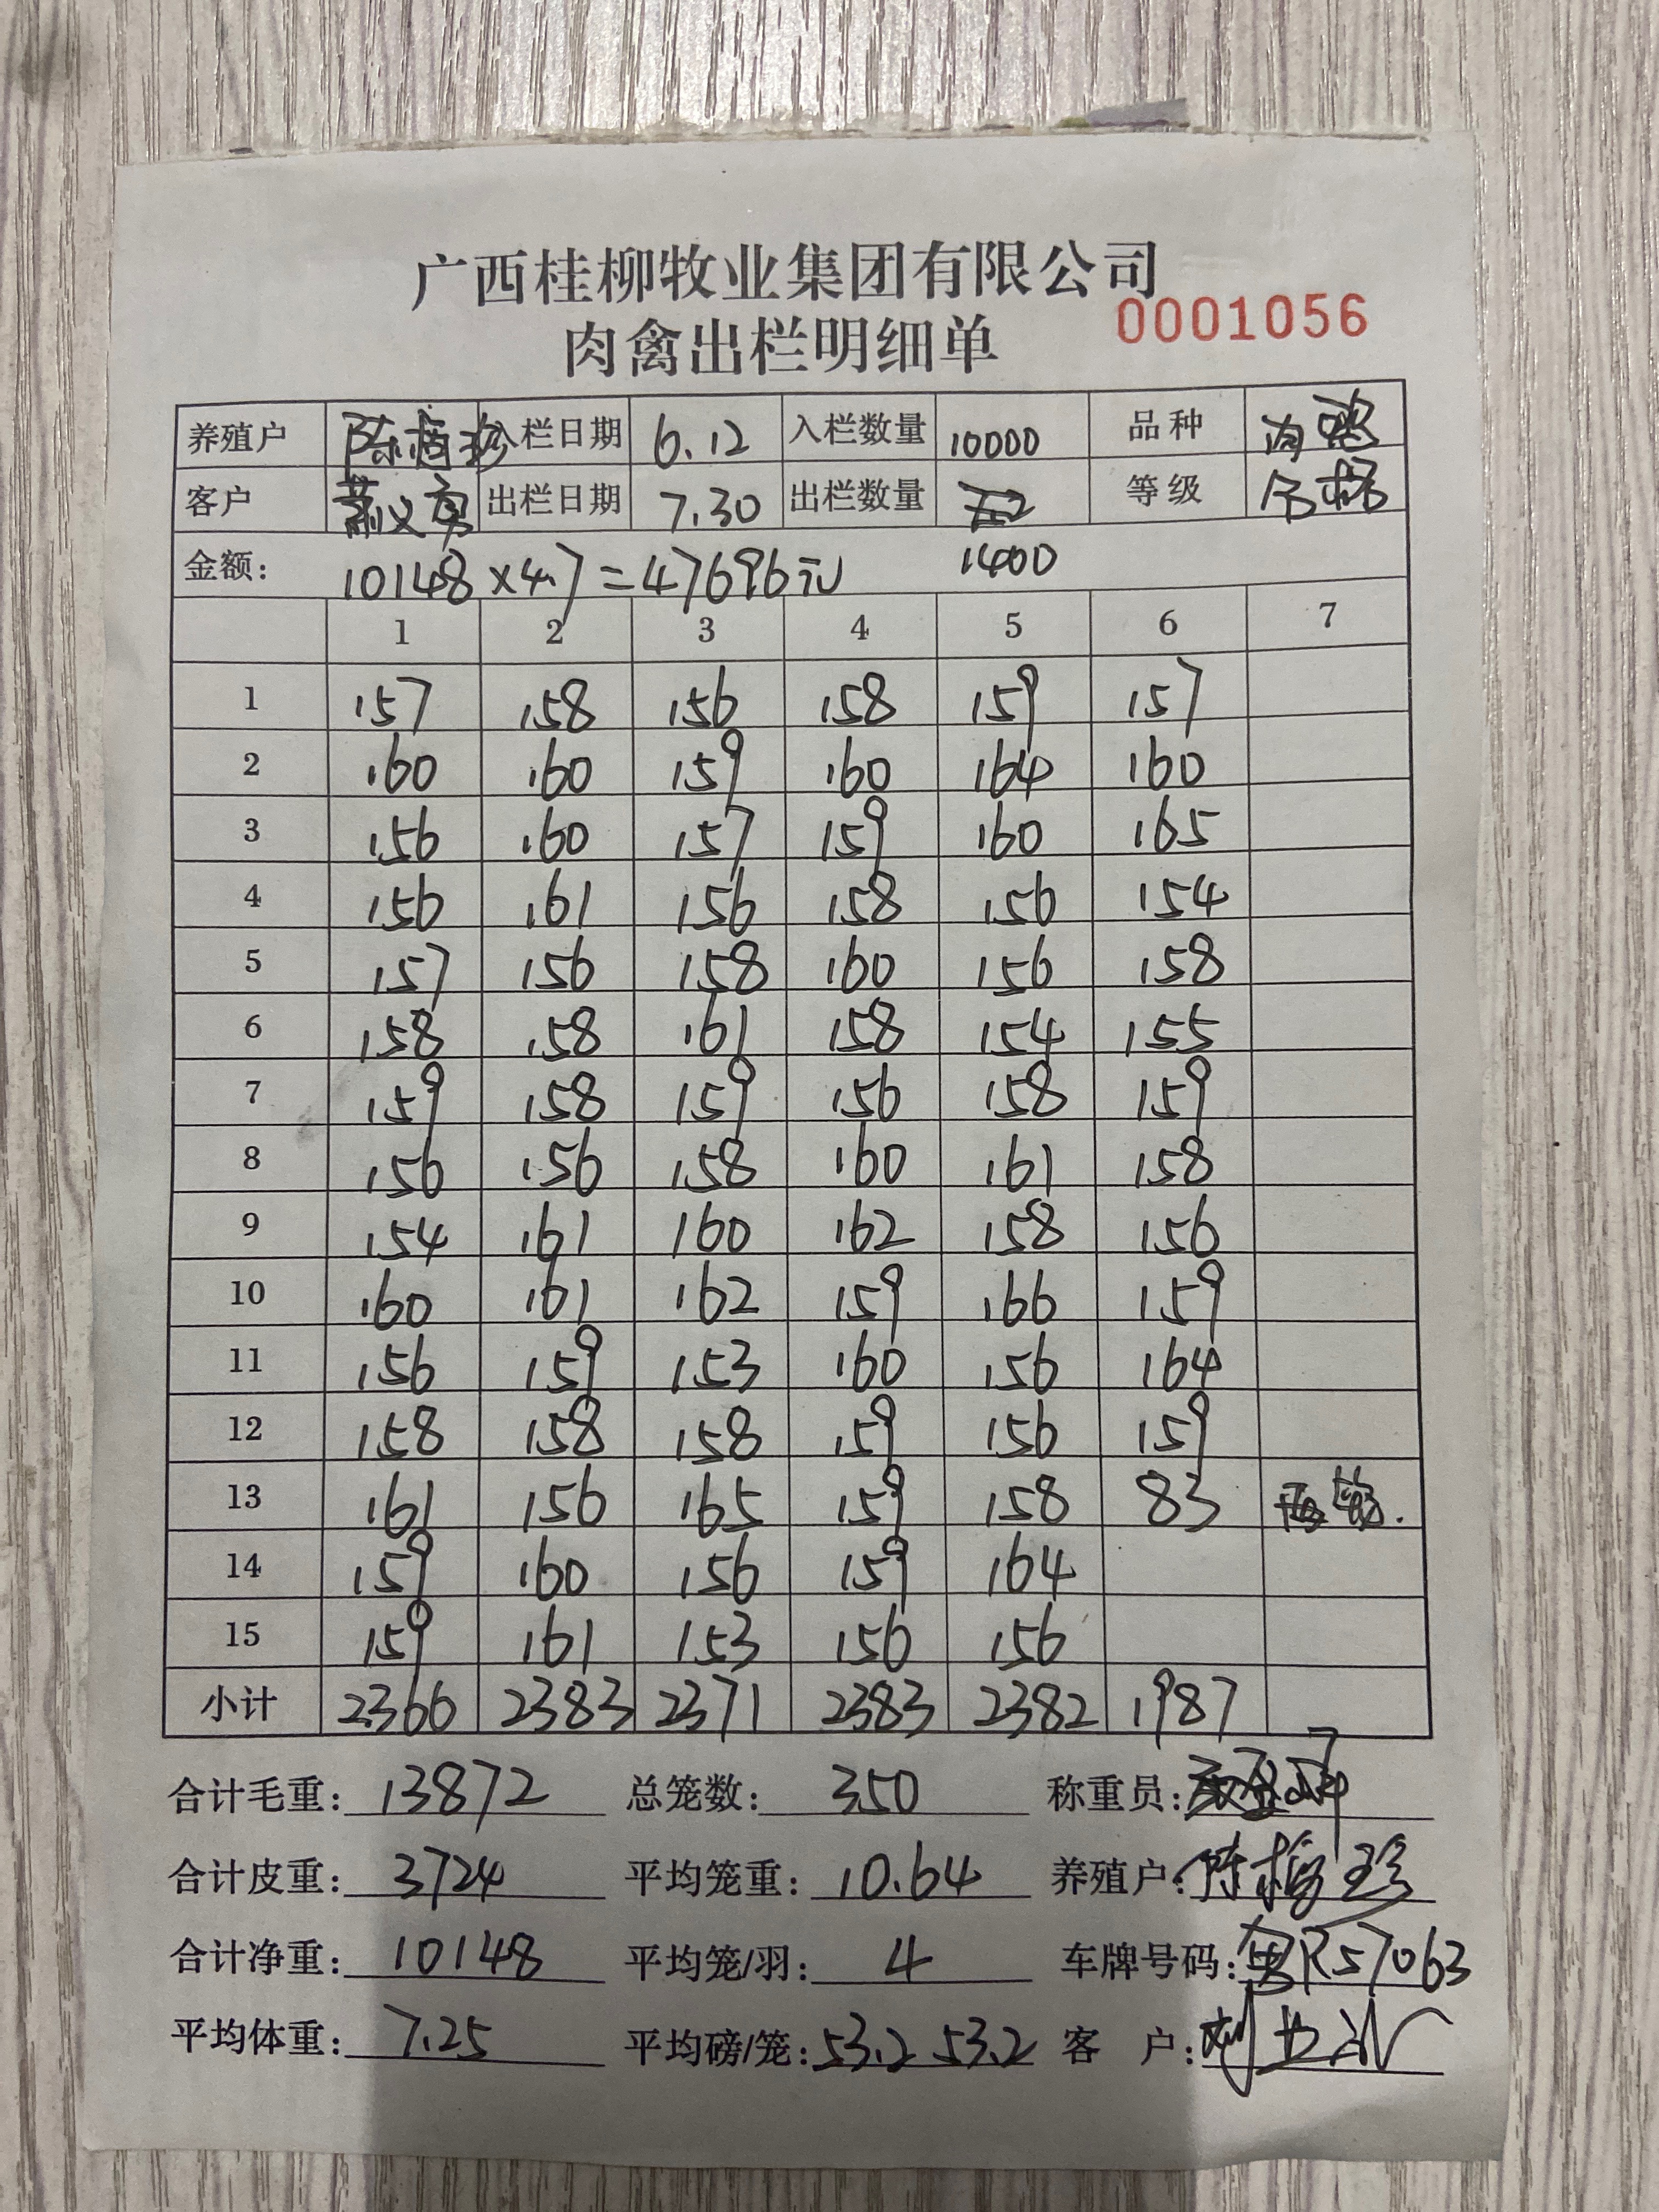 广西桂柳牧业集团有限公司
肉禽出栏明细单 0001056
养殖户 陈梅珍 入栏日期 6.12 入栏数量 10000 品种 肉鸡
客户 萧义勇 出栏日期 7.30 出栏数量 等级 合格
金额: 10148×4.7=47696元 1400
1 2 3 4 5 6 7
1 157 158 156 158 159 157
2 160 160 159 160 164 160
3 156 160 157 159 160 165
4 156 161 156 158 156 154
5 157 156 158 160 156 158
6 158 158 161 158 154 155
7 159 158 159 156 158 159
8 156 156 158 160 161 158
9 154 161 160 162 158 156
10 160 161 162 159 166 159
11 156 159 153 160 156 164
12 158 158 158 159 156 159
13 161 156 165 159 158 83 两笼.
14 159 160 156 159 164
15 159 161 153 156 156
小计 2366 2383 2371 2383 2382 1987
合计毛重: 13872 总笼数: 350 称重员:
合计皮重: 3724 平均笼重: 10.64 养殖户: 陈梅珍
合计净重: 10148 平均笼/羽: 4 车牌号码: 粤R57063
平均体重: 7.25 平均磅/笼: 53.2 53.2 客 户: